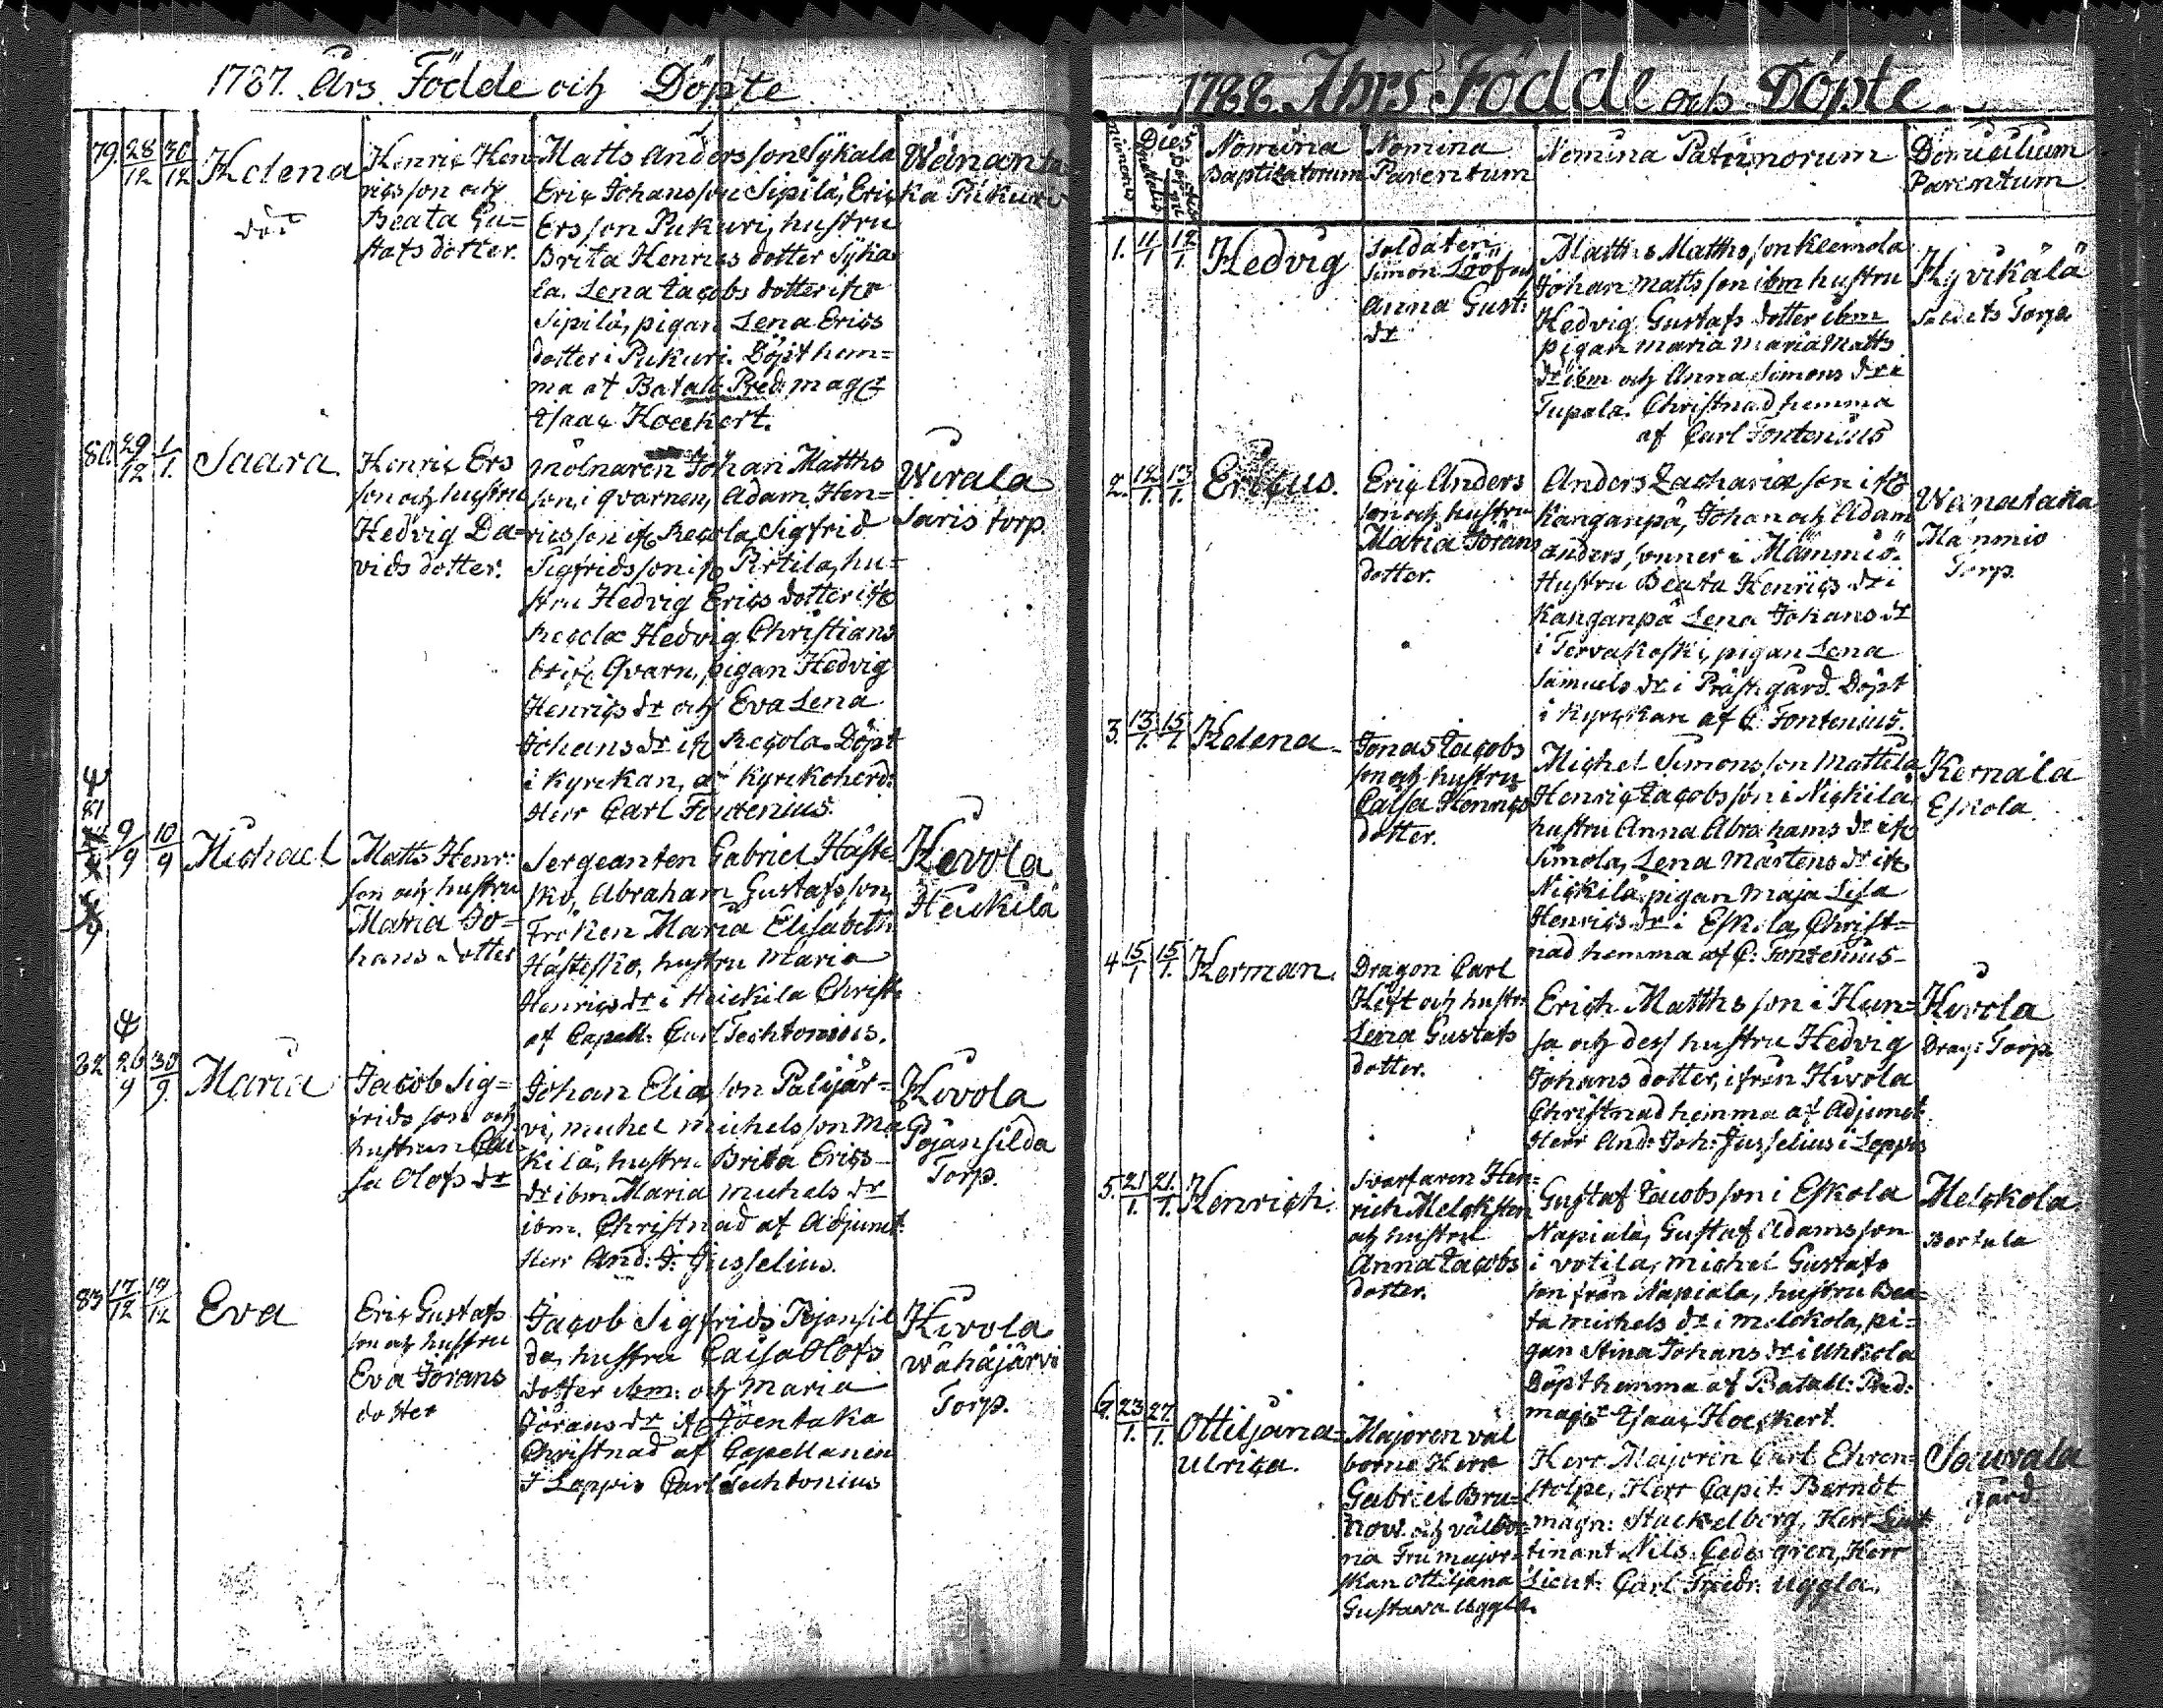 1787. Års Födde och Döpte
79. 28/12 30/12 Helena
död
Henric Hen-
ricsson och
Beata Gu=
stafs dotter.
Matts Andersson Sÿkala
Eric Johansson Sipilä, Eric
Ersson Pukuri, hustru
Brita Henrics dotter Sÿka
la. Lena Jacobs dotter ifr
Sipilä, pigan Lena Erics
dotter i Pukuri. Döpt hem=
ma af Batall: Pred: mag:r
Isaac Hoeckert.
Pukuri
80. 29/12 1/1. Saara.
Henric Ers
son och hustru
Hedvig Da=
vids dotter.
mölnaren Johan Matths
son i qvarnen, Adam Hen=
ricsson if: Recola, Sigfrid
Sigfridsson if: Pirtila, hu=
stru Hedvig Erics dotter if:
Recola Hedvig Christians
Qvarn, pigan Hedvig
Henrics dr och Eva Lena
Johans dr if: Recola. Döpt
i Kyrckan, af Kyrckoherd:
Herr Carl Fontenius.
Wirala
Saris torp.
81 9/9 10/9 Michael
Matts Henr:
son och hustru
Maria Jo=
hans dotter
Sergeanten Gabriel Häste
sko, Abraham Gustafsson,
Fröken Maria Elisabeth
Hästesko, hustru Maria
Henrics dr i Heickilä Christ:
af Capell: Carl Techtonius.
Hevola
Heickilä
82 26/9 30/9. Maria
Jacob Sig=
frids son och
hustrun Cai
sa Olofs dr
Johan Elia son Palijär=
vi, michel michelsson Mä
kilä, hustru Brita Erics
dr ibm Maria michels dr
ibm. Christnad af Adjunct:
Herr And: J: Jusselius.
Hevola
Pojansilda
Torp.
83 17/12 19/12 Eva
Eric Gustafs
son och hustru
Eva Jörans
dotter
Jacob Sigfrids Pojansil
da, hustru Caisa Olofs
dotter ibm: och Maria
Jörans dr if: Jöentaka
Christnad af Capellanen
I Loppis Carl Techtonius
Hevola
Wähäjärvi
Torp.
1788. Åhrs Födde och Döpte.
Dies
Nomina
Baptizatorum
Nomina
Parentum
Nomina Patrinorum
Domicilium
Parentum
1. 11/1 12/1. Hedvig
Soldaten
Simon Lööf och
Anna Gust:
dr
Matths Matths son Kleemola
Johan Mattsson ibm hustru
Hedvig Gustafs dotter ibm
pigan maria maria Matts
dr ibm och Anna Simons dr i
Tupala. Christnad hemma
af Carl Fontenius
Hyvikälä
Torp.
2. 12/1. 13/1. Ericus.
Eric Anders
son och hustru
Maria Jörans
dotter.
Anders Zacharia son if:
Kanganpä, Johan och Adam
Anders söner i Mämmiö.
Hustru Beata Henrics dr i
Kanganpä Lena Johans dr
i Tervakoski, pigan Lena
Samuels dr i Prästegård. Döpt
i Kyrckan af C: Fontenius.
Wanataka
Mämmiö
Torp.
3. 13/1. 15/1 Helena
Jonas Jacobs
son och hustru
Caisa Henrics
dotter.
Michel Simonsson Mattila
Henric Jacobsson i Nickilä
hustru Anna Abrahams dr if:
Simola, Lena Mårtens dr if:
Nickilä, pigan Maja Lisa
Henrics dr i Eskola, Christ=
nad hemma af C: Fontenius
Kernala
Eskola
4 15/1 15/1. Herman.
Dragon Carl
Heft och hustr:
Lena Gustafs
dotter.
Erich Matthsson i Hun=
sa och dess hustru Hedvig
Johans dotter, ifrån Hevola
Christnad hemma af Adjunct:
Herr And: Joh: Jusselius i Loppis
Hevola
Drag: Torp
5. 21/1. 21./1. Henrich.
Svarfaren Hen=
rich Melcksten
och hustru
Anna Jacobs
dotter.
Gustaf Jacobsson i Eskola
Napiala, Gustaf Adamsson
i Votila, michel Gustafs
son från Napiala, hustru Bea=
ta michels dr i melckola, pi=
gan Stina Johans dr i Uhkola
Döpt hemma af Batall: Pred:
mag:r Isaac Hoeckert.
Melckola
Bertula
6. 23/1. 27./1. Ottiljana=
Ulrica.
Majoren väl
borne Herr
Gabriel Bru=
now. och välbor=
na Fru major=
skan Ottiljana
Gustava Uggla.
Herr Majoren Carl Ehren=
stolpe, Herr Capit: Berndt
magn: Stackelberg, Herr Lieut
tenant Nils Cedergren, Herr
Lieut: Carl Fredr: Uggla.
Sauvala
gård